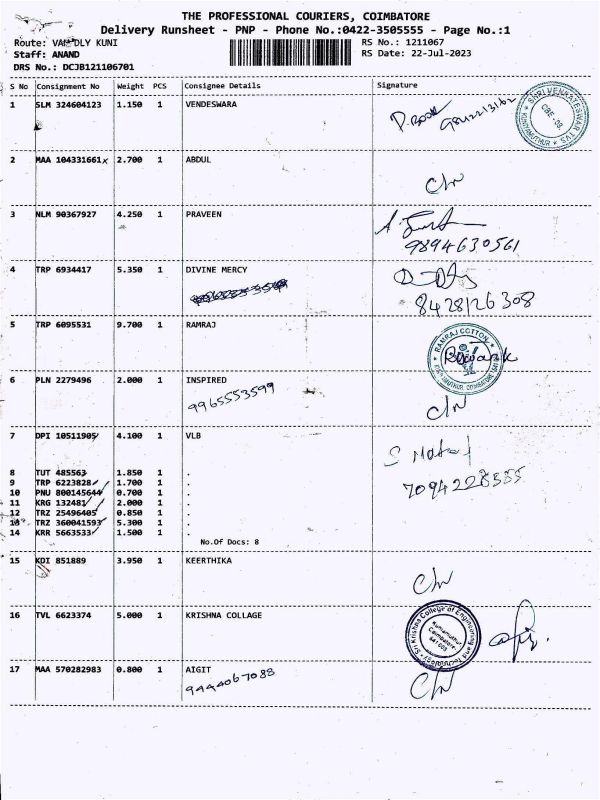 THE PROFESSIONAL COURIERS, COIMBATORE
Delivery Runsheet - PNP - Phone No.:0422-3505555 - Page No.:1
Route: DLY KUNI RS No.: 1211067
Staff: ANAND RS Date: 22-Jul-2023
DRS No.: DCJB121106701
S No Consignment No Weight PCS Consignee Details Signature
1 SLM 324604123 1.150 1 VENDESWARA
SHRI VENKATESWAR TVS
CBE-38
KUNIYAMUTHUR
2 MAA 104331661 2.700 1 ABDUL
3 NLM 90367927 4.250 1 PRAVEEN
9894630561
4 TRP 6934417 5.350 1 DIVINE MERCY
8428126308
5 TRP 6095531 9.700 1 RAMRAJ
RAMRAJ COTTON
6 PLN 2279496 2.000 1 INSPIRED
9965553599
7 DPI 10511905 4.100 1 VLB
8 TUT 485563 1.850 1 .
9 TRP 6223828 1.700 1 .
10 PNU 800145644 0.700 1 .
11 KRG 132481 2.000 1 .
12 TRZ 25496405 0.850 1 .
13 TRZ 360041593 5.300 1 .
14 KRR 5663533 1.500 1 .
7094228555
No.Of Docs: 8
15 KDI 851889 3.950 1 KEERTHIKA
16 TVL 6623374 5.000 1 KRISHNA COLLAGE
Sri Krishna College of Engineering and Technology
Kuniamuthur
Coimbatore-
641 008
17 MAA 570282983 0.800 1 AIGIT
9444067088